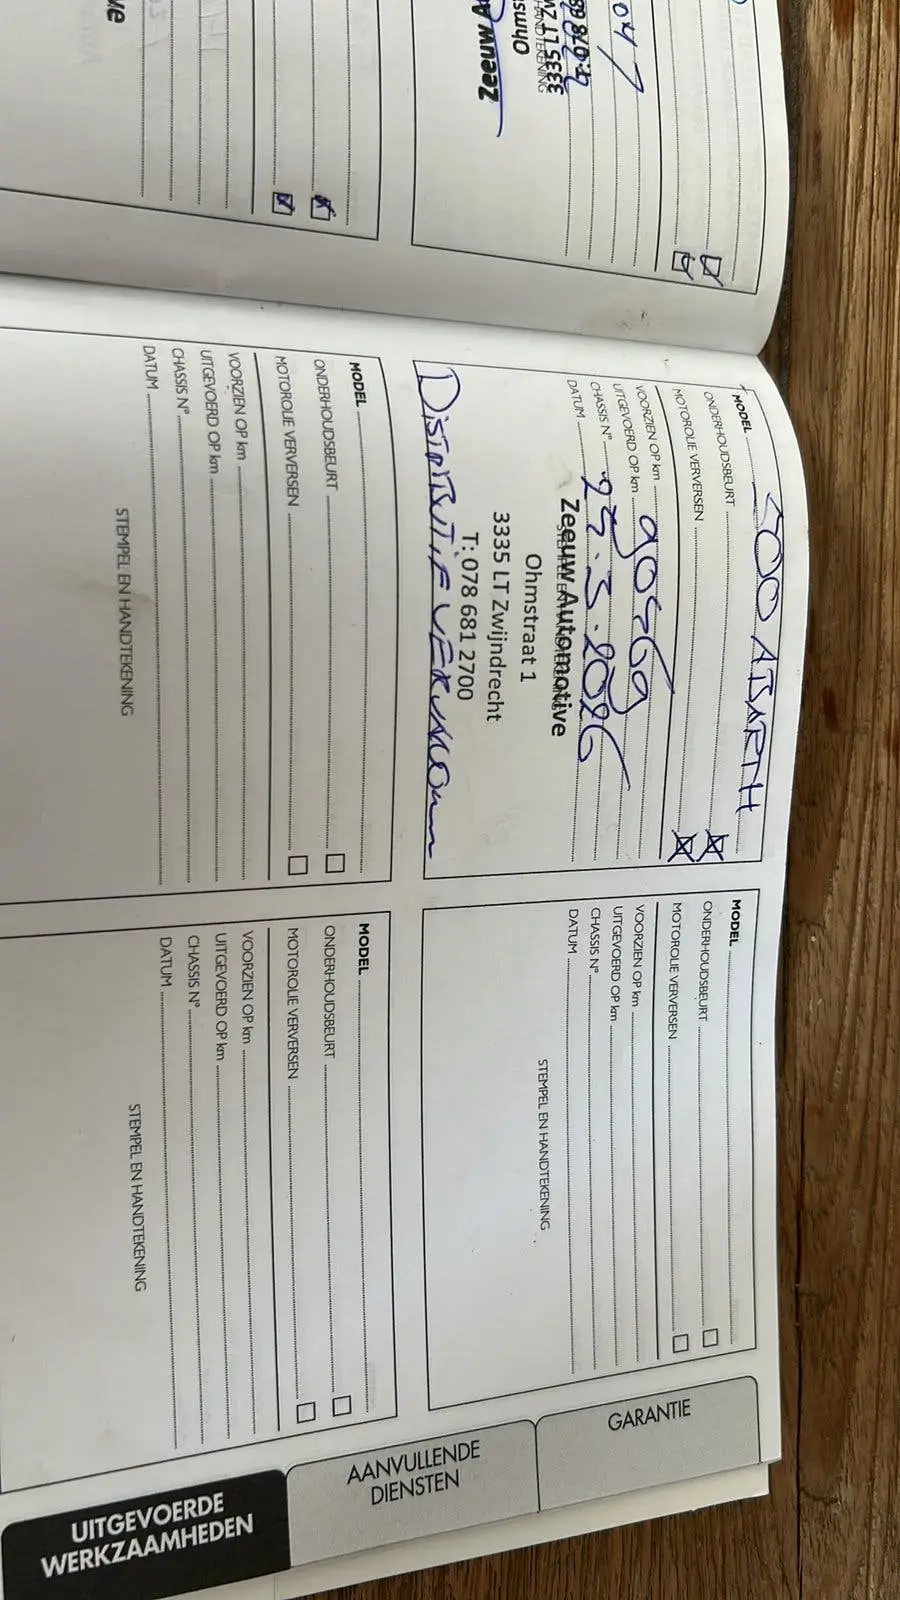 047
T: 078 68
3335 LT Zw
HANDTEKENING
Ohmst
Zeeuw A
ve
MODEL 500 ABARTH
ONDERHOUDSBEURT
MOTOROLIE VERVERSEN
VOORZIEN OP km
UITGEVOERD OP km 90569
CHASSIS N°
DATUM 23.3.2026
STEMPEL EN HANDTEKENING
Zeeuw Automotive
Ohmstraat 1
3335 LT Zwijndrecht
T: 078 681 2700
MODEL
ONDERHOUDSBEURT
MOTOROLIE VERVERSEN
VOORZIEN OP km
UITGEVOERD OP km
CHASSIS N°
DATUM
STEMPEL EN HANDTEKENING
MODEL
ONDERHOUDSBEURT
MOTOROLIE VERVERSEN
VOORZIEN OP km
UITGEVOERD OP km
CHASSIS N°
DATUM
STEMPEL EN HANDTEKENING
MODEL
ONDERHOUDSBEURT
MOTOROLIE VERVERSEN
VOORZIEN OP km
UITGEVOERD OP km
CHASSIS N°
DATUM
STEMPEL EN HANDTEKENING
GARANTIE
AANVULLENDE
DIENSTEN
UITGEVOERDE
WERKZAAMHEDEN